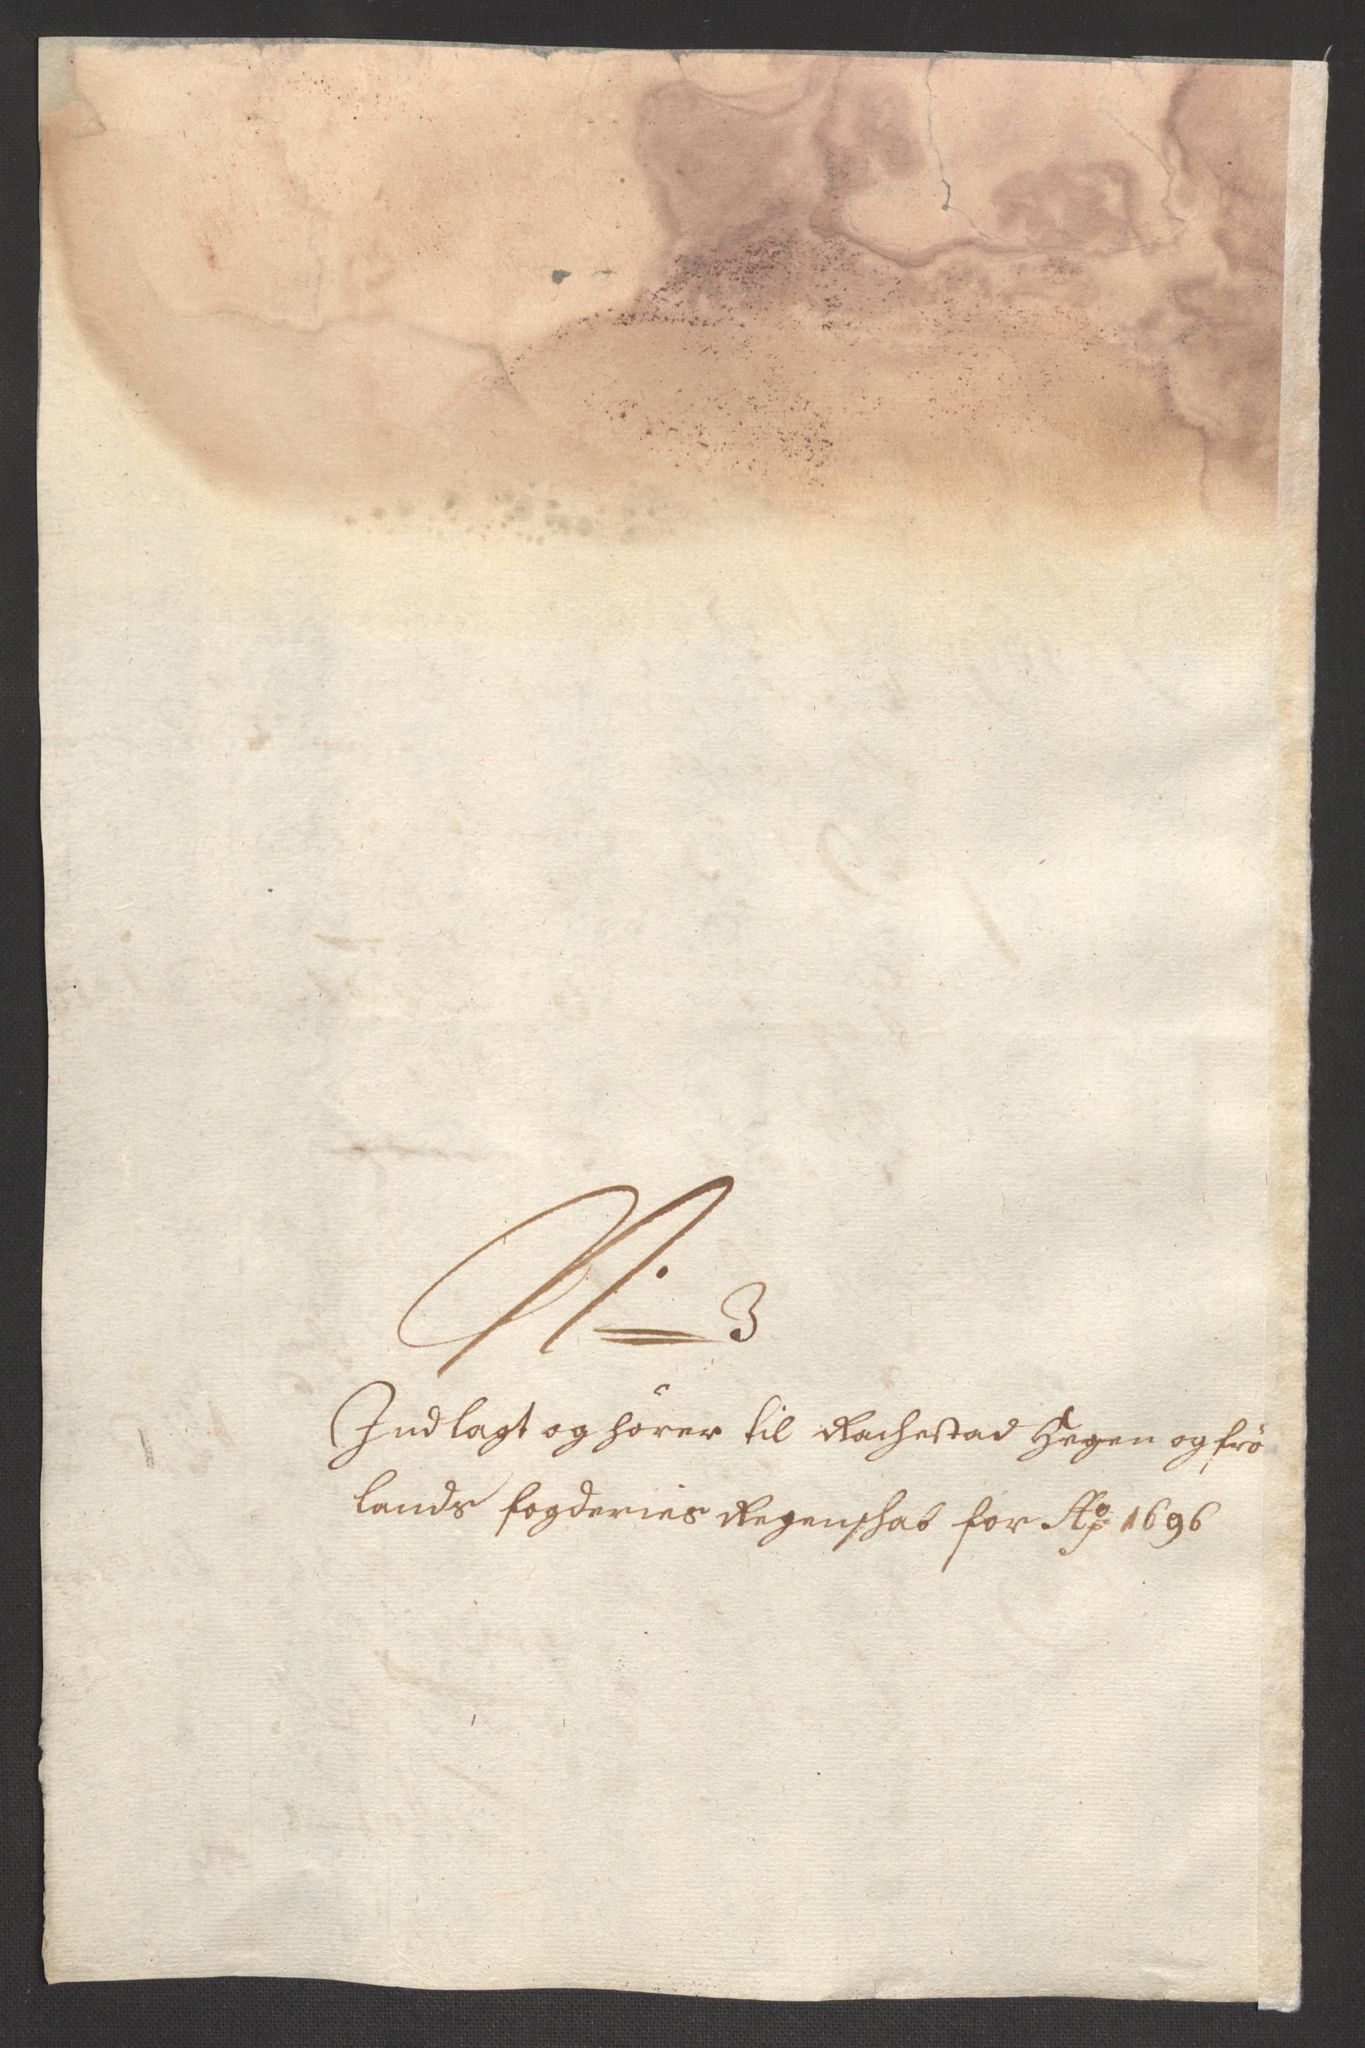 N. 3
Indlagt og hörer til Rachestad Heggen og frö
lands fogderies Regenschab for Ao 1696